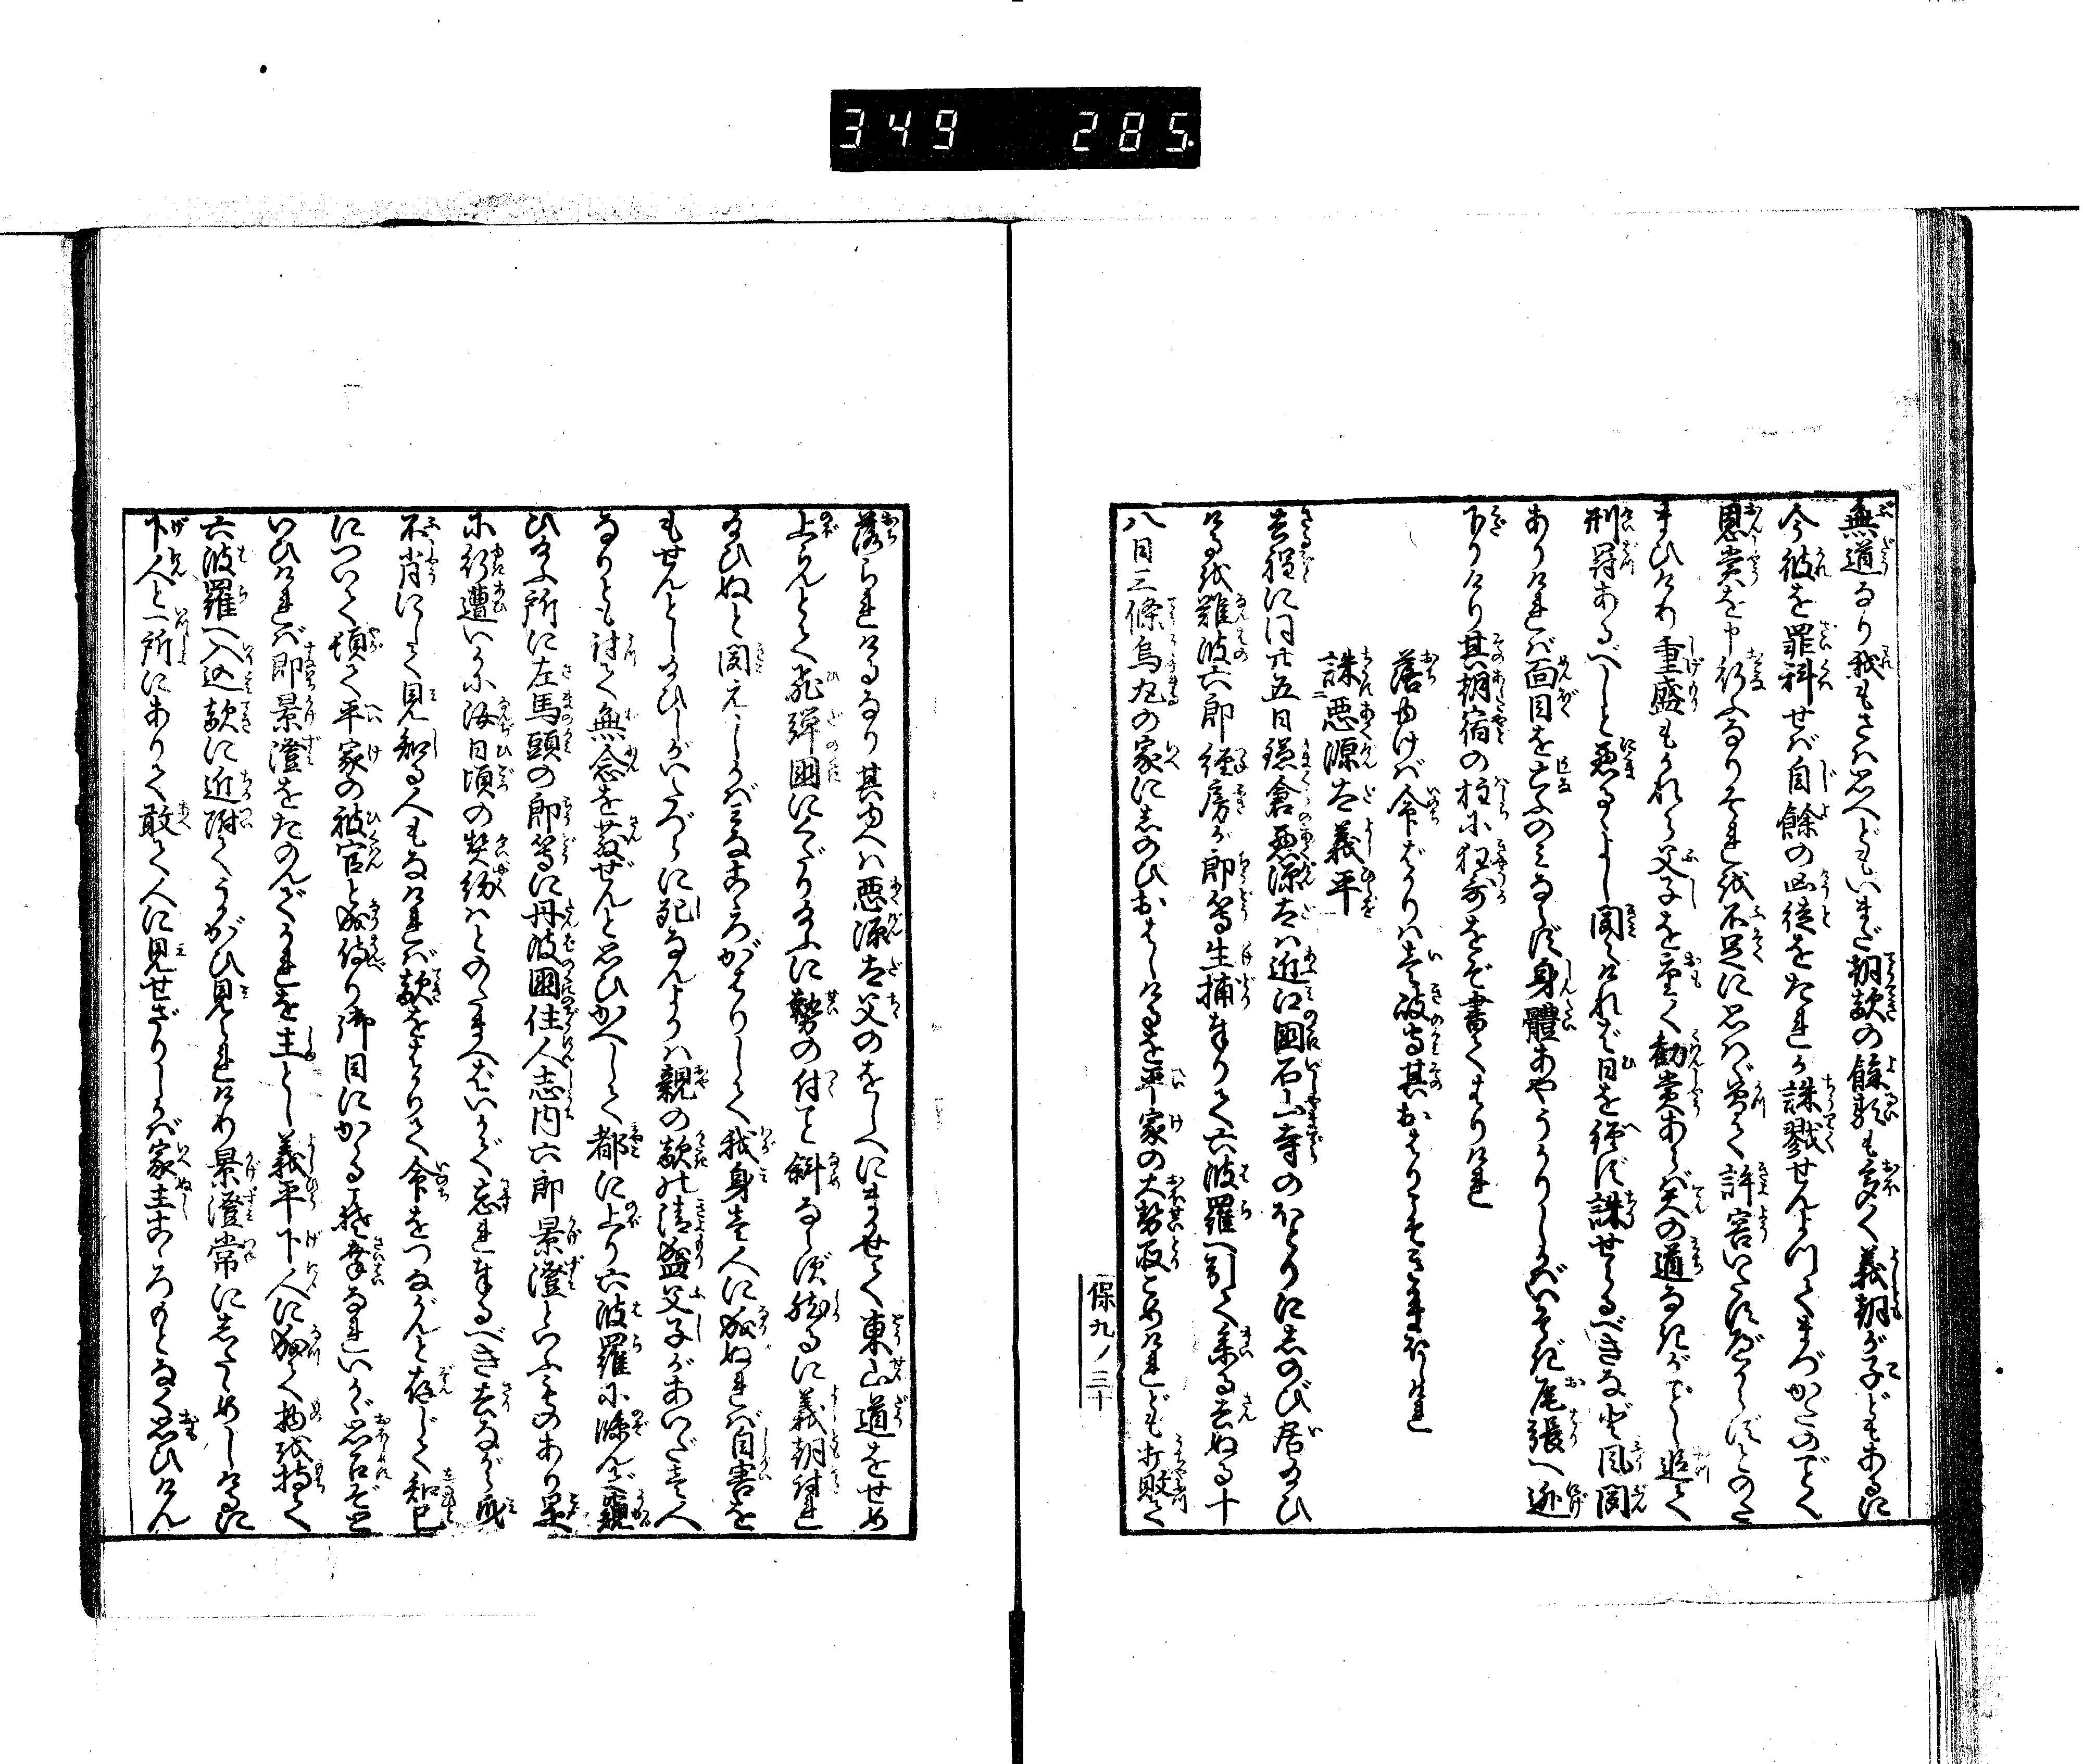 349 285
無道なり我もさは思へどもいまだ朝敵の餘類も多く義朝が子どもあるに
今彼を罪科せば自餘の凶徒をたれか誅戮せんよつてまづかたのごとく
恩賞を申行ふなりそれを不足に思はゞ曽て許容いたすべからずとのた
まひければ重盛もかれら父子を重く勧賞あらば天の道なきがごとし追て
刑罸あるべしと悪るよし聞えければ日を経ず誅せらるべきなど風聞
ありければ面目を亡ふのみならず身體あやうかりしかばいそぎ尾張へ逃
下りけり其朝宿の柱に狂哥をぞ書てはりける
落ゆけば命ばかりは壱岐守其おはりこそきかまほしけれ
誅悪源太義平
去程に同廿五日鎌倉悪源太は近江國石山寺のほとりにしのび居給ひ
けるを難波六郎経房が郎等生捕奉りて六波羅へ引て参る去ぬる十
八日三條烏丸の家にしのびおはしけるを平家の大勢取こめけれども打敗て
保九ノ三十
落られけるなり其ゆへは悪源太父のをしへにまかせて東山道をせめ
上らんとて飛弾國にくだり給ふに勢の付こと斜ならず然るに義朝討れ
給ひぬと聞えしかばみなこゝろがはりして我身壱人に成ぬれば自害を
もせんとし給ひしがいたづらに死なんよりは親の敵清盛父子があいだ壱人
なりとも討て無念を散ぜんと思ひかへして都に上り六波羅に臨んで窺
ひ給ふ所に左馬頭の郎等に丹波國住人志内六郎景澄といふものあり是
に行遭いかに汝日頃の契約はとのたまへばいかで忘れ奉るべき去ながら我
不肖にして見知る人もなければ敵をはかりて命をつながんと存じて知己
について頃て平家の被官と成侍り御目にかゝる社幸なれいかゞ思召ぞと
いひければ即景澄をたのんでかれを主とし義平下人に成て物を持て
六波羅へ入込敵に近附てうかゞひ見られけり景澄常にしたゝめしけるに
下人と一所にありて敢て人に見せざりしかば家主こゝろもとなく思ひけん